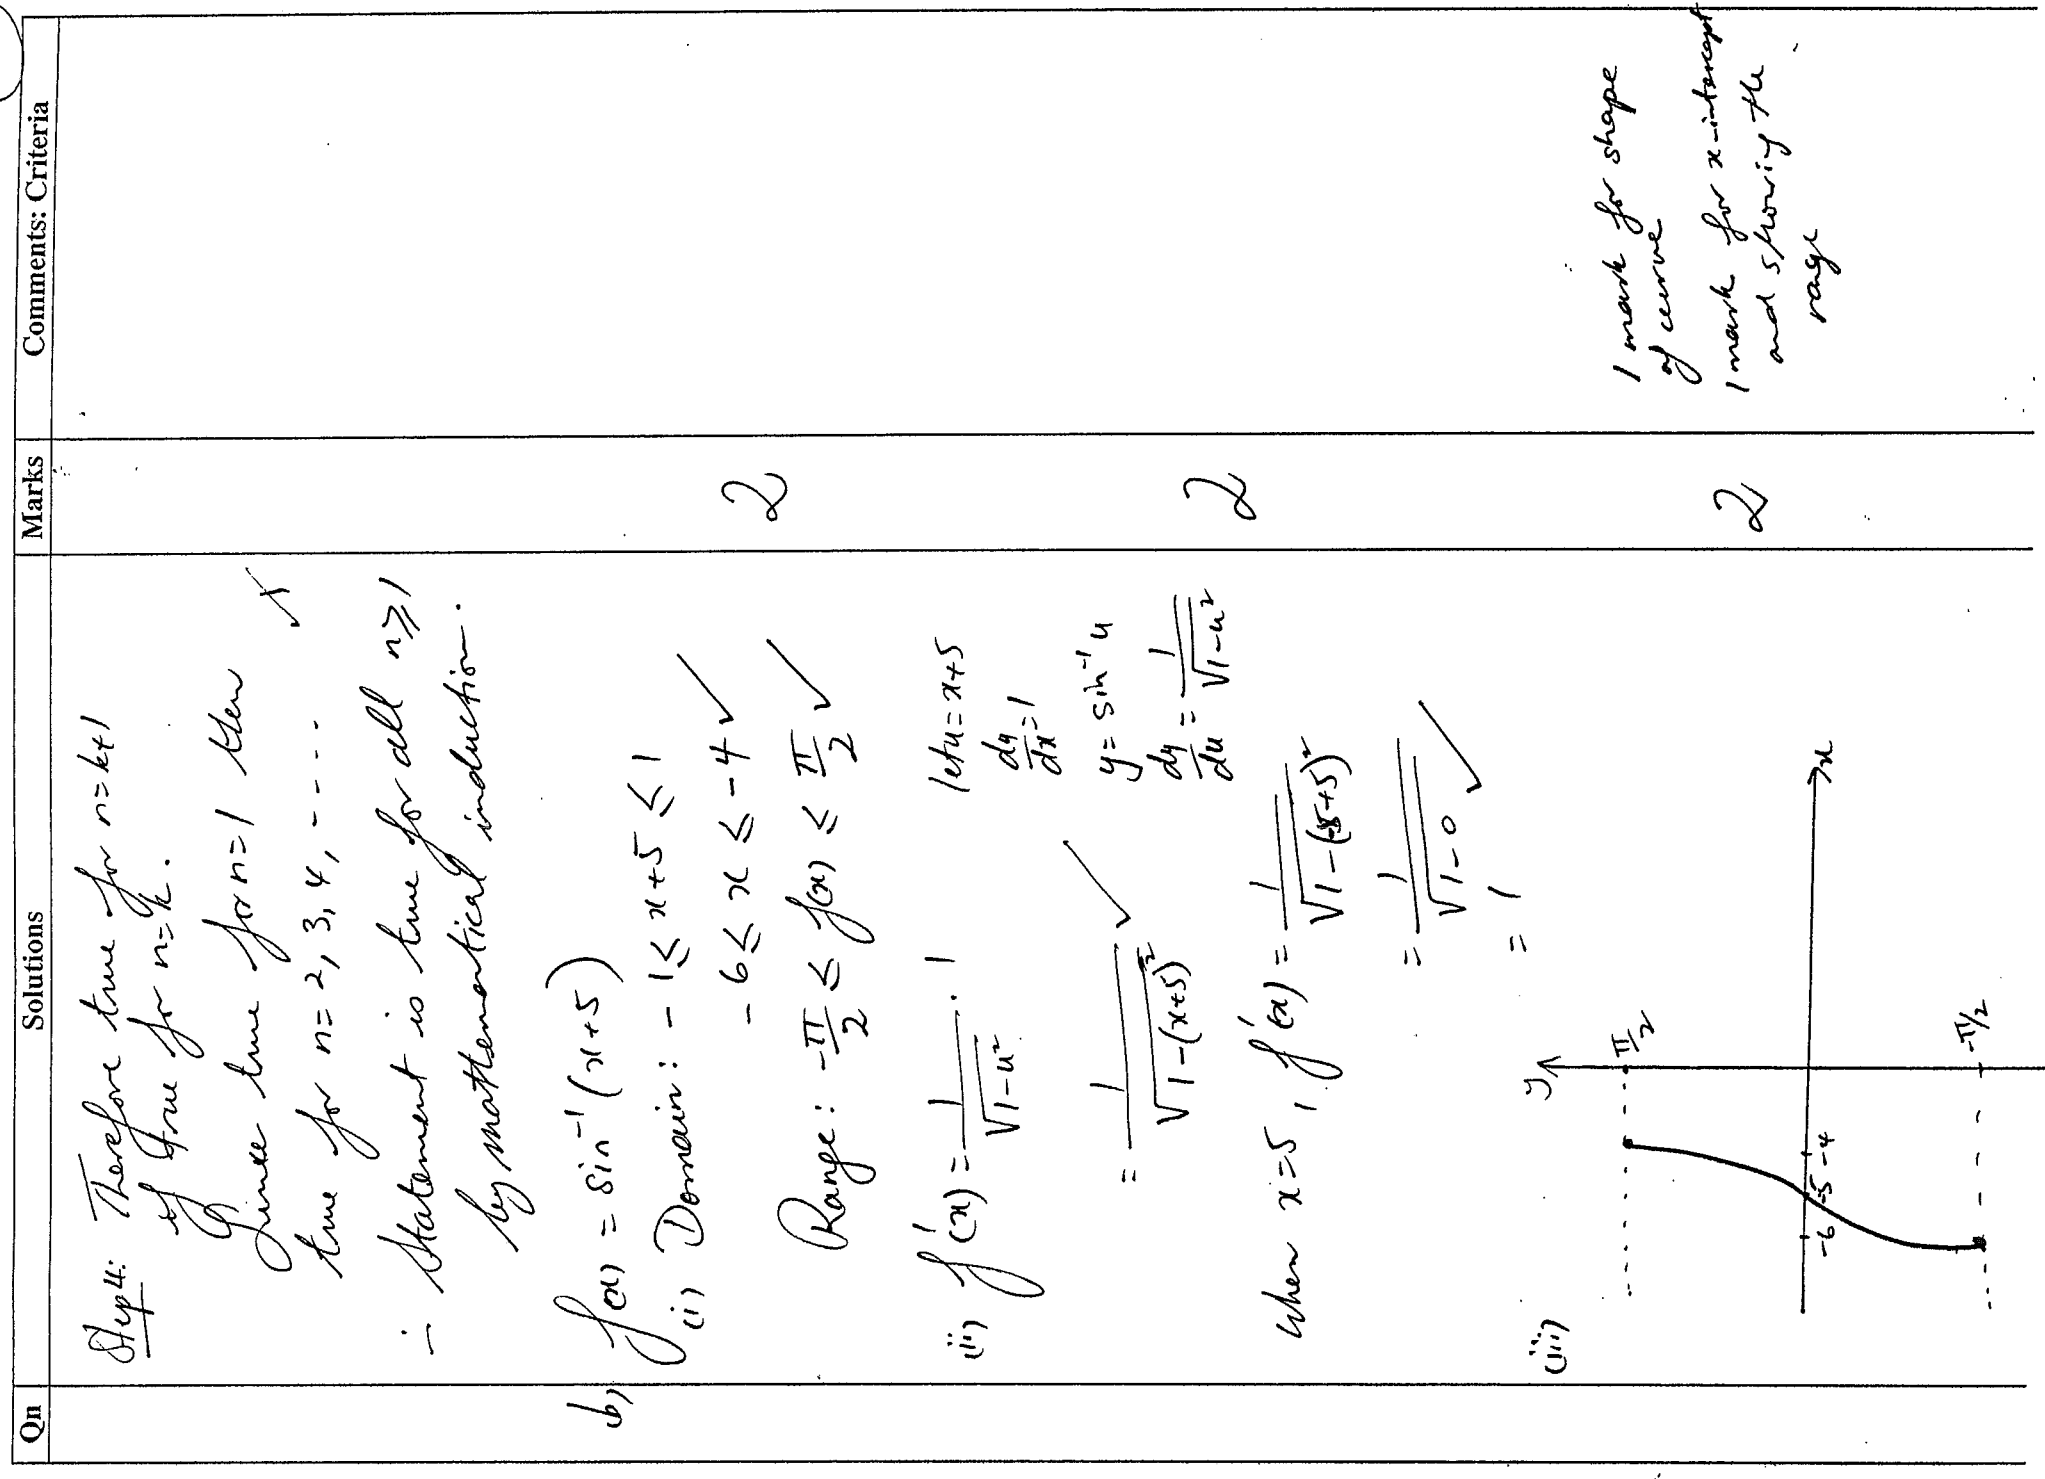 Qn Solutions Marks Comments: Criteria
Step 4: Therefore true for n=k+1
if true for n=k.
Since true for n=1 then
true for n=2,3,4,----
∴ Statement is true for all n≥1
by mathematical induction.
b) f(x) = sin⁻¹(x+5)
(i) Domain: -1≤x+5≤1
-6≤x≤-4 ✓ 2
Range: -π/2 ≤ f(x) ≤ π/2 ✓
(ii) f'(x) = 1/√(1-u²) . 1 let u=x+5
du/dx=1
= 1/√(1-(x+5)²) ✓ y=sin⁻¹u
dy/du = 1/√(1-u²)
2
when x=5, f'(x) = 1/√(1-(-5+5)²)
= 1/√(1-0) ✓
= 1
(iii) y
π/2
-6 -5 -4 x
-π/2
2
1 mark for shape
of curve
1 mark for x-intercept
and showing the
range